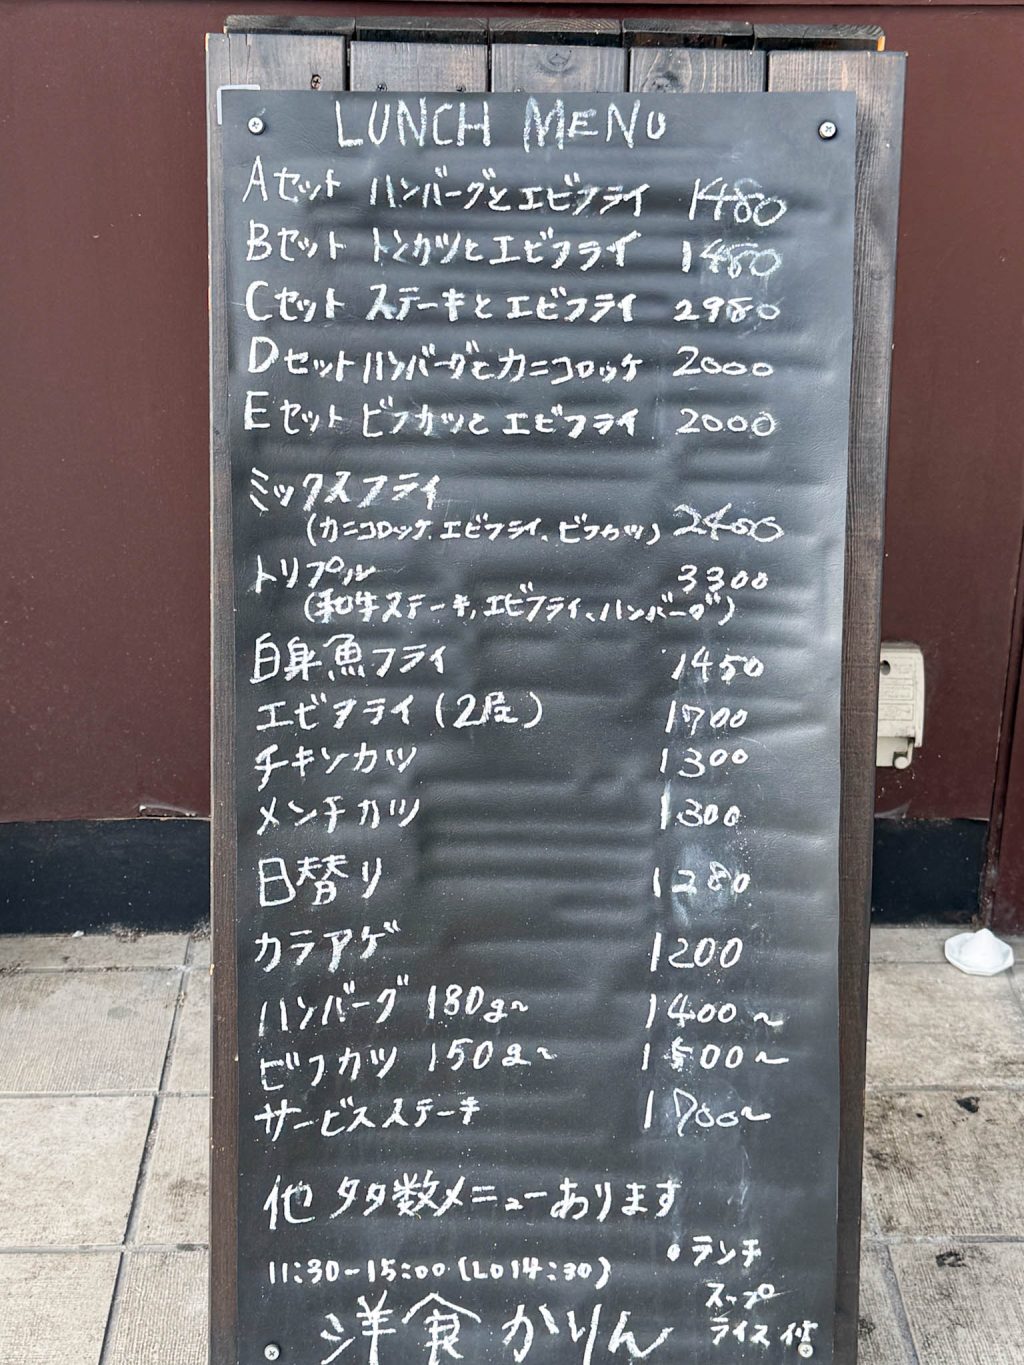 LUNCH MENU
Aセット ハンバーグとエビフライ 1480
Bセット トンカツとエビフライ 1480
Cセット ステーキとエビフライ 2980
Dセット ハンバーグとカニコロッケ 2000
Eセット ビフカツとエビフライ 2000
ミックスフライ
(カニコロッケ、エビフライ、ビフカツ) 2400
トリプル 3300
(和牛ステーキ、エビフライ、ハンバーグ)
白身魚フライ 1450
エビフライ(2尾) 1700
チキンカツ 1300
メンチカツ 1300
日替り 1280
カラアゲ 1200
ハンバーグ 180g〜 1400〜
ビフカツ 150g〜 1500〜
サービスステーキ 1700〜
他 多数メニューあります
11:30-15:00 (LO 14:30)
洋食かりん
•ランチ
スープ
ライス付